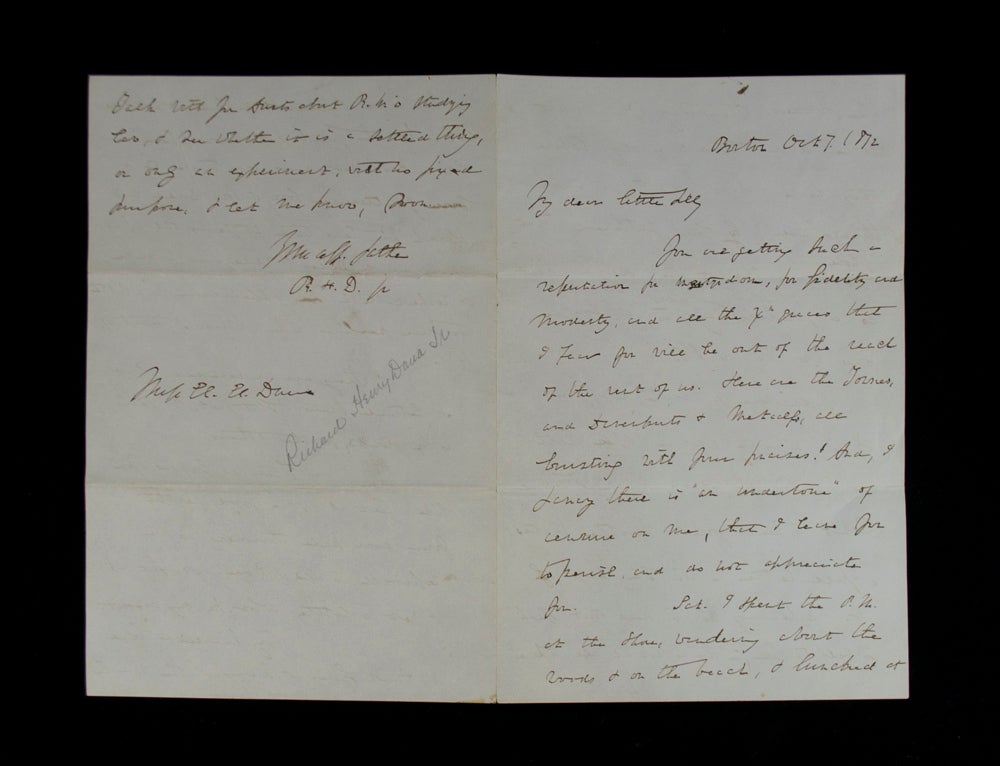 Talk with your Aunts about R. his studying
law, & see whether it is a settled thing,
or only an experiment, with no fixed
purpose, & let me know, soon
Your aff. father
R. H. D. jr
Miss E. E. Dana
Richard Henry Dana Jr
Boston Oct 7. 1872
My dear little Lily
You are getting such a
reputation for martyrdom, for fidelity and
modesty, and all the Xn graces that
I fear you will be out of the reach
of the rest of us. Here are the
and & Metcalfs, all
bursting with your praises! And, I
fancy there is "an undertone" of
censure on me, that I leave you
to perish, and do not appreciate
you. Sat. I spent the P. M.
at the Shore, wandering about the
woods & on the beach, & lunched at